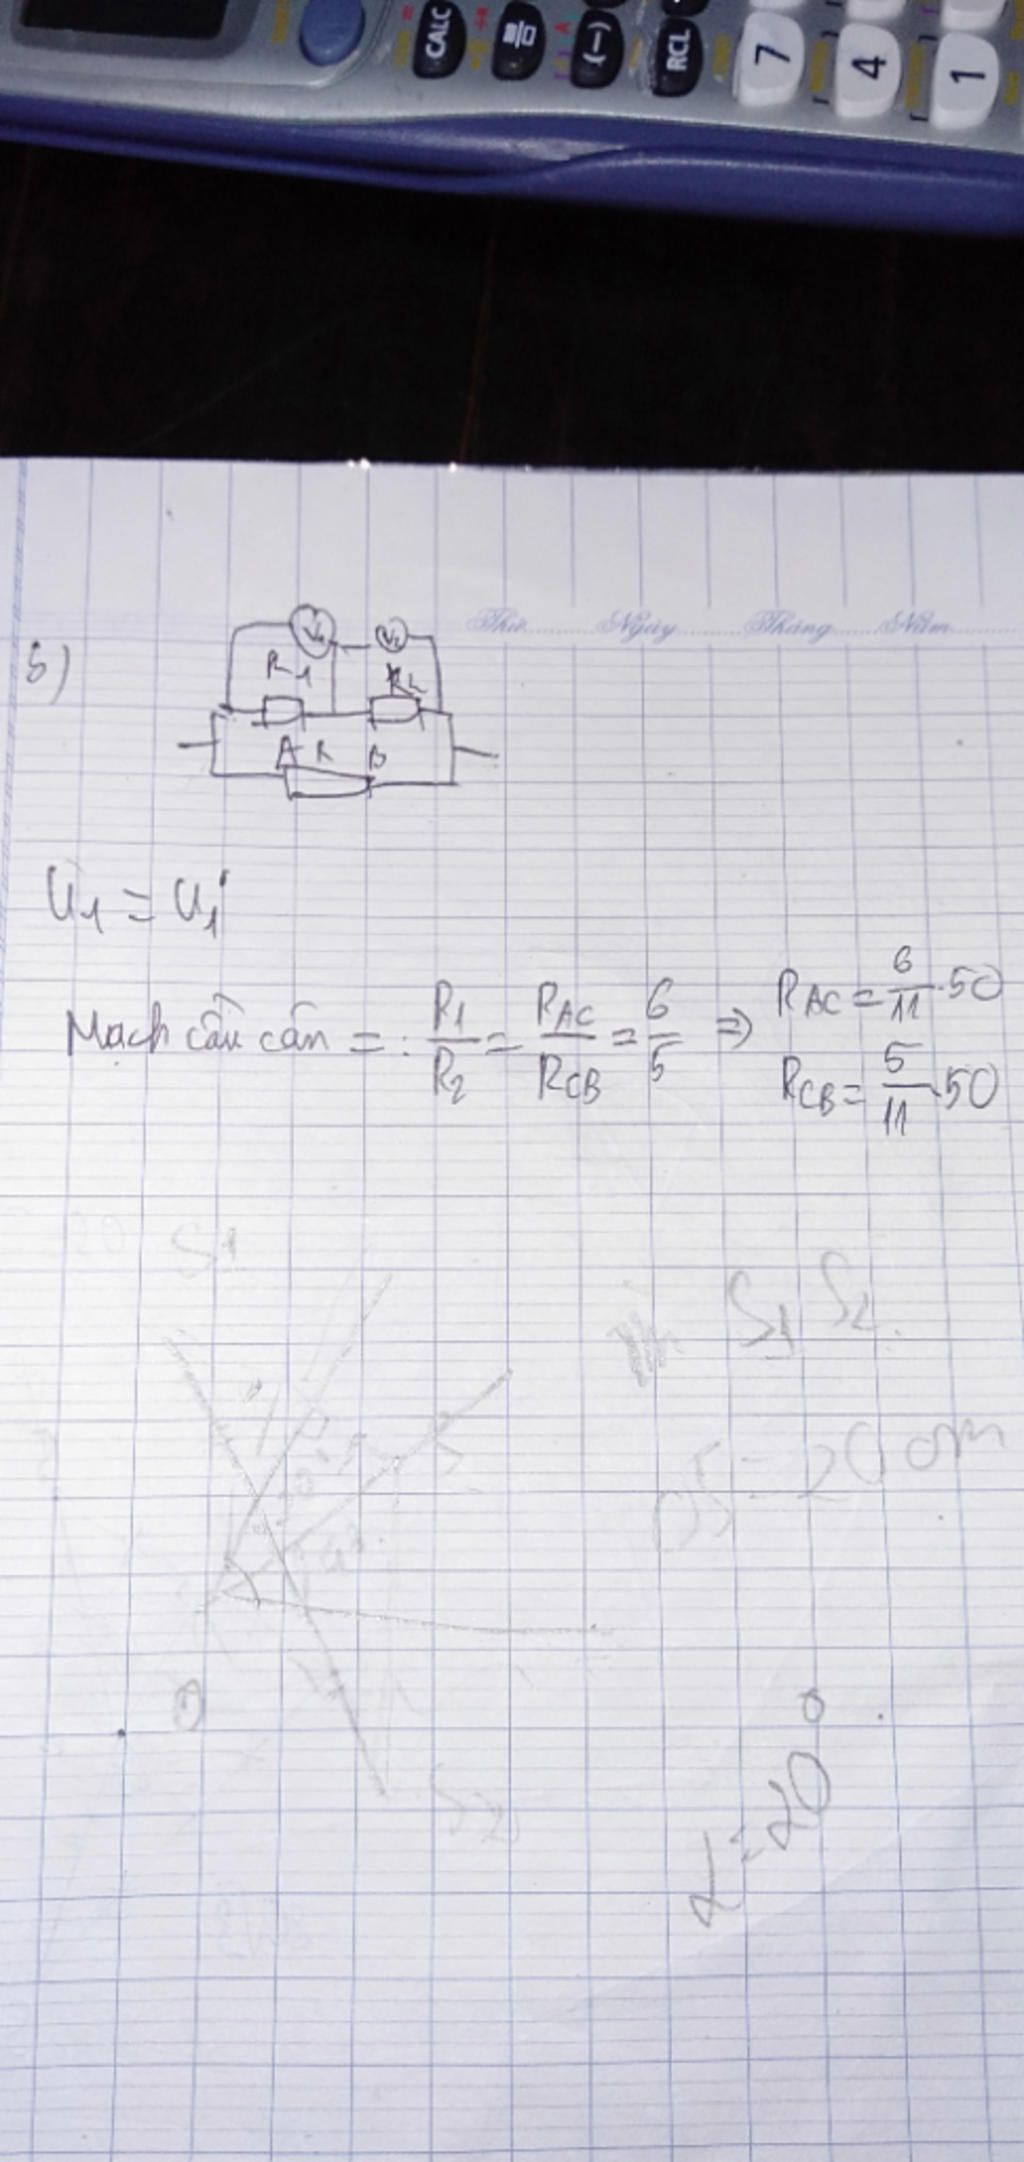 CALC (−) RCL 7 4 1
Thứ Ngày Tháng Năm
b)
V1 V2
R1 R2
A R B
U1 = U1'
Mạch cầu cân = : R1/R2 = RAC/RCB = 6/5 => RAC = 6/11 . 50
RCB = 5/11 . 50
S1
S1 S2
OS = 20 cm
S
O
S2
α = 20°